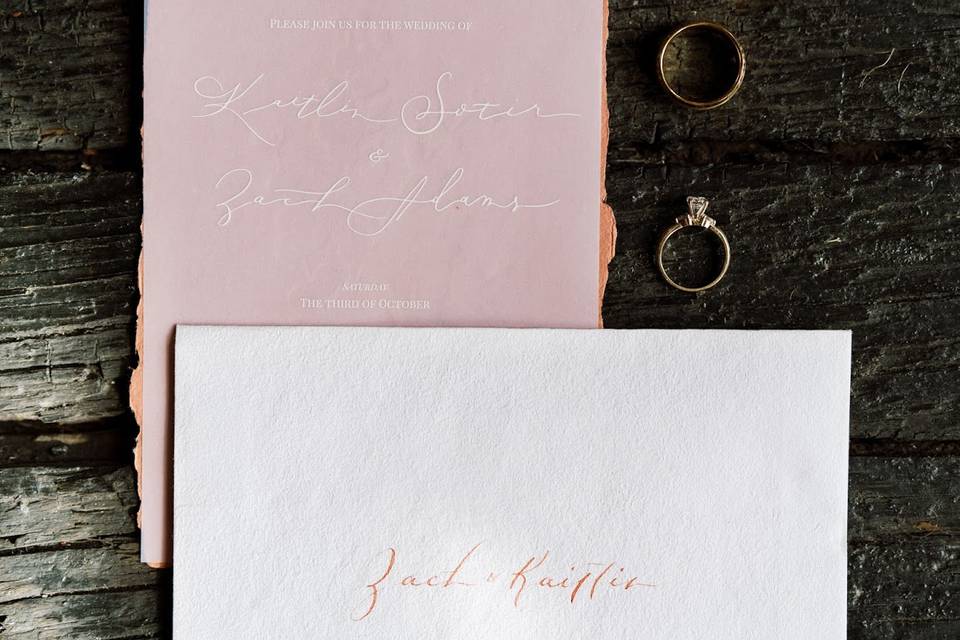 Please join us for the wedding of
Kaitlin Sotir
&
Zach Adams
Saturday
The third of October
Zach & Kaitlin